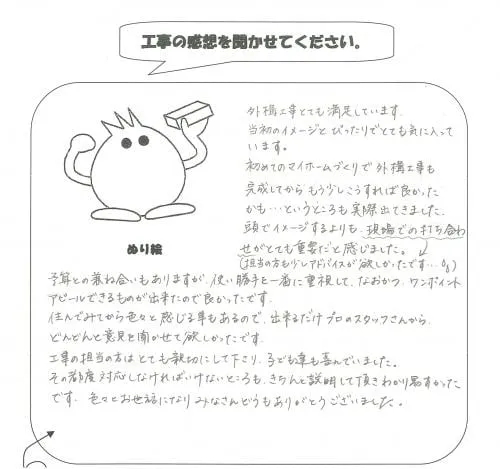 工事の感想を聞かせてください。
外構工事とても満足しています。
当初のイメージとぴったりでとても気に入って
います。
初めてのマイホームづくりで外構工事も
完成してからもう少しこうすれば良かった
かも…というところも実際出てきました。
頭でイメージするよりも、現場での打ち合わ
せがとても重要だと感じました。
(担当の方も少しアドバイスが欲しかったです…
ぬり絵
予算との兼ね合いもありますが、使い勝手を一番に重視して、なおかつ、ワンポイント
アピールできるものが出来たので良かったです。
住んでみてから色々と感じる事もあるので、出来るだけプロのスタッフさんから、
どんどんと意見を聞かせて欲しかったです。
工事の担当の方はとても親切にして下さり、子ども達も喜んでいました。
その都度対応しなければいけないところも、きちんと説明して頂きわかり易すかった
です。色々とお世話になりみなさんどうもありがとうございました。